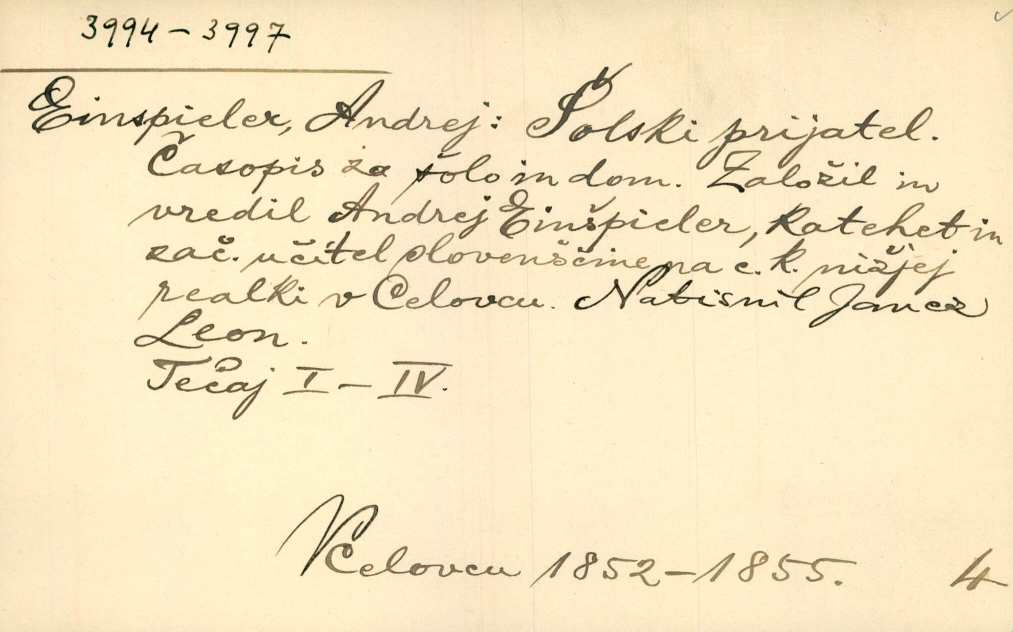 3994 – 3997
Einspieler, Andrej: Šolski prijatel.
Časopis za šolo in dom. Založil in
vredil Andrej Einšpieler, katehet in
zač. učitel slovenščine na c. k. nižjej
realki v Celovcu. Natisnil Janez
Leon.
Tečaj I – IV.
V Celovcu 1852–1855. 4